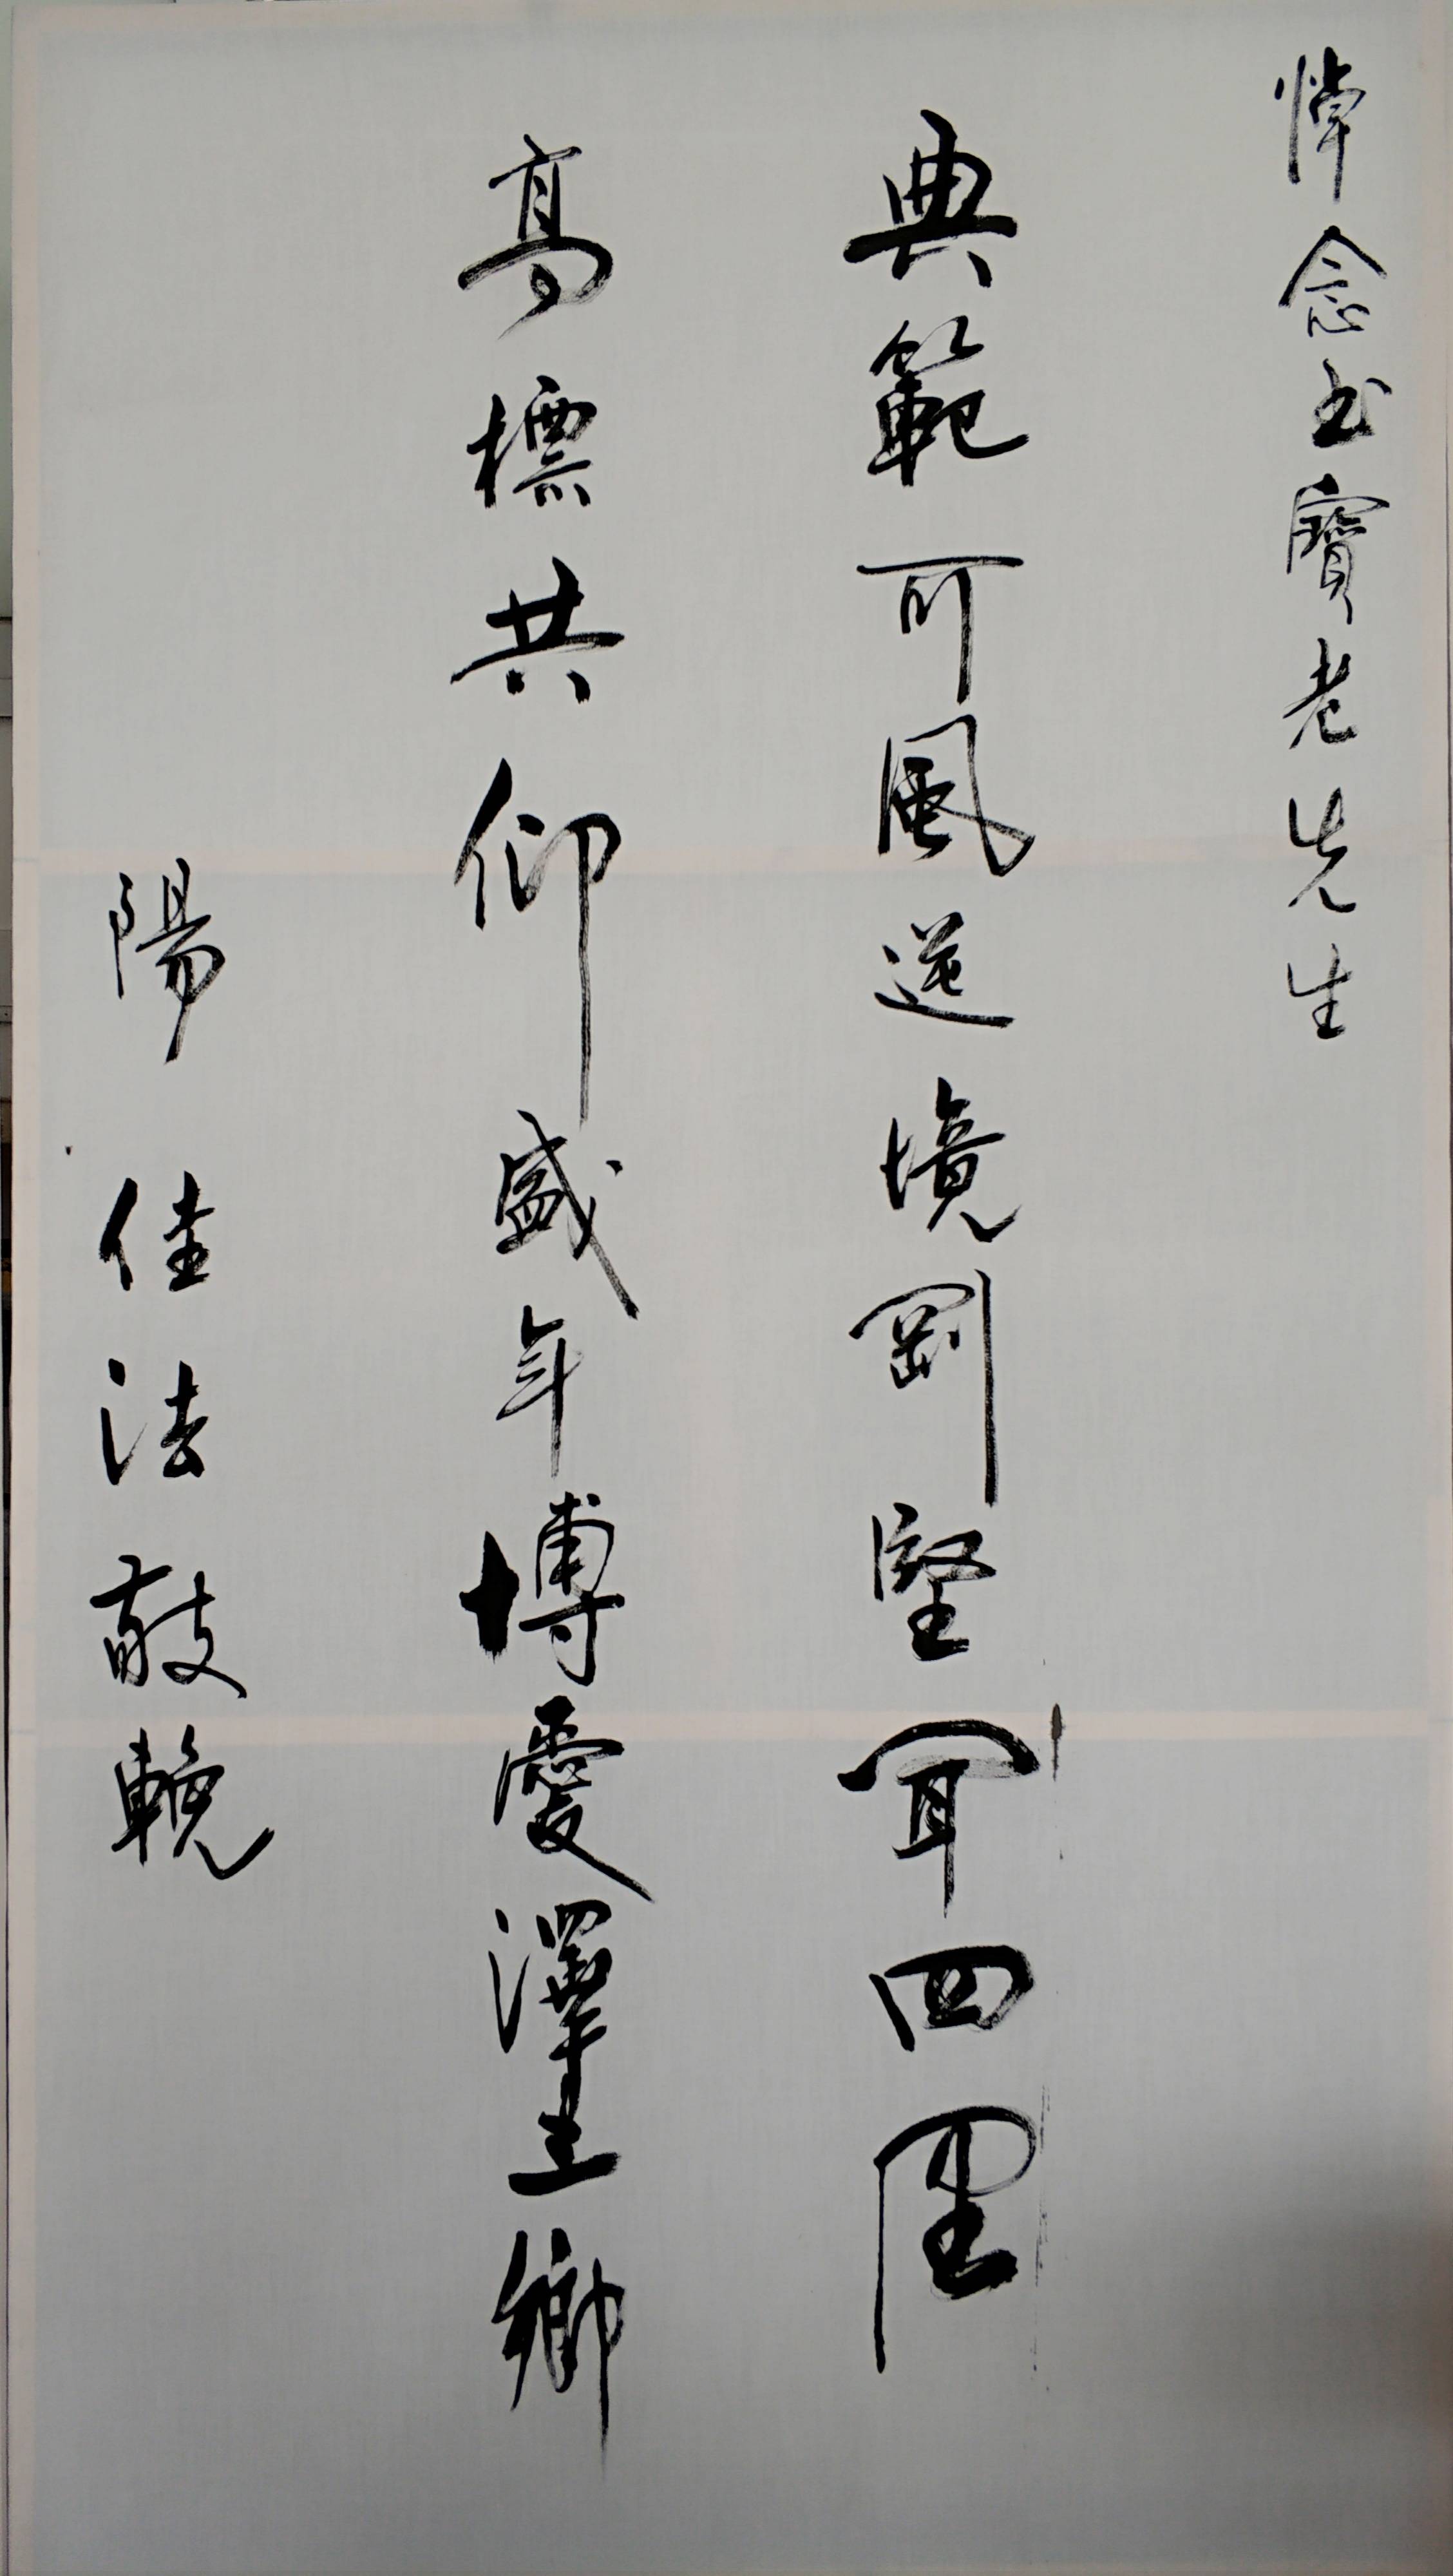 悼念寶老先生
典範可風逆境剛堅聞四
高標共仰盛年博愛澤三鄉
陽 佳法敬輓